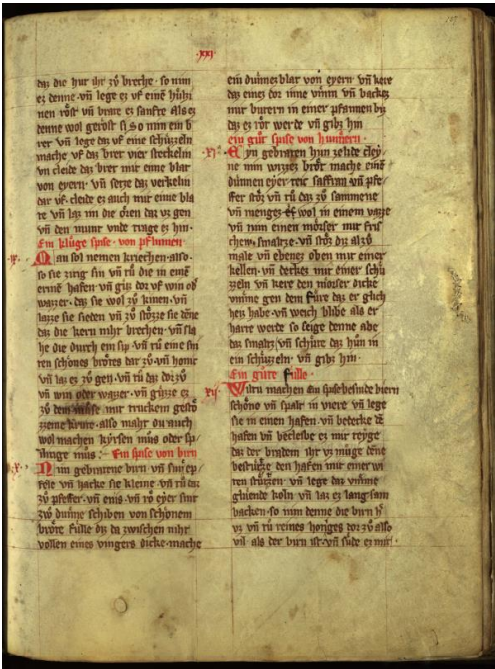 ·xxi·
daz die hut iht zů breche · so nim
ez denne · vñ lege ez vf eine hültzi
nen röst vñ brate ez sanfte Als ez
denne wol geröst si So nim ein b
ret vñ lege daz vf eine schüzzeln
mache vf daz bret vier steckelin
vñ cleide daz bret mit eine blat
von eyern · vñ setze daz verkelin
dar vf · cleide ez auch mit eine bla
te vñ laz im die oren dar vz gen
vñ den munt vnde trage ez hin ·
Ein klůge spise · von pflumen ·
Man sol nemen kriechen · also ·
so sie zitig sin vñ tů die in eine
erine hafen · vñ giz dor vf win od
wazzer · daz sie wol zů kinen · vñ
laz sie sieden vñ zů stözze sie deñe
daz die kern niht brechen · vñ sla
he die durch ein sip vñ tů eine sm
ren schönes brotes dar zů · vñ honic
vñ laz ez zů gen · vñ tů dor zů
vñ win oder wazzer · vñ gütze ez
zů dem můse · mit truckem gestö
zzene krute · also maht du auch
wol machen kyrsen můs oder sp
illinge můs · Ein spise von birn
Nim gebratene birn · vñ sur ep
fele vñ hacke sie kleine · vñ tů dor
zů pfeffer · vñ enis · vñ ro eyer snit
zwů dunne schiben von schönem
brote fülle diz da zwischen niht
vollen eines vingers dicke · mache
ein dunnez blat von eyern · vñ kere
daz einez dor inne vmm vñ backez
mit butern in einer pfannen biz
daz ez rot werde vñ gibz hin
ein gůt spise von hunern ·
Eyn gebraten hun zelide cley
ne nim wizzez brot mache eine
dunnen eyer teic saffran vñ pfe
ffer stöz vñ tů daz zů sammene
vñ menges wol in einem vazze
vñ nim einen mörser mit fris
chem smaltze · vñ stöz diz alzů
male vñ ebenez oben mit einer
kellen · vñ deckez mit einer schü
zzeln vñ kere den mörser dicke
vmme gen dem füre daz er glich
heiz habe · vñ weich blibe als er
harte werde so seige denne abe
daz smaltz · vñ schüte daz hůn in
ein schüzzeln · vñ gibz hin ·
Ein gůte fülle
Wiltu machen ein spise besnide birn
schöne vñ spalt in viere vñ lege
sie in einen hafen · vñ betecke dē
hafen vñ becleibe ez mit teyge
daz der bradem iht vz müge dēne
bestürtze den hafen mit einer wi
ten stürtzen · vñ lege dar vmme
gluende koln vñ laz ez langsam
backen · so nim denne die birn h̄
vz vñ tů reines honiges dor zů also
vil als der birn ist · vñ sude ez mit